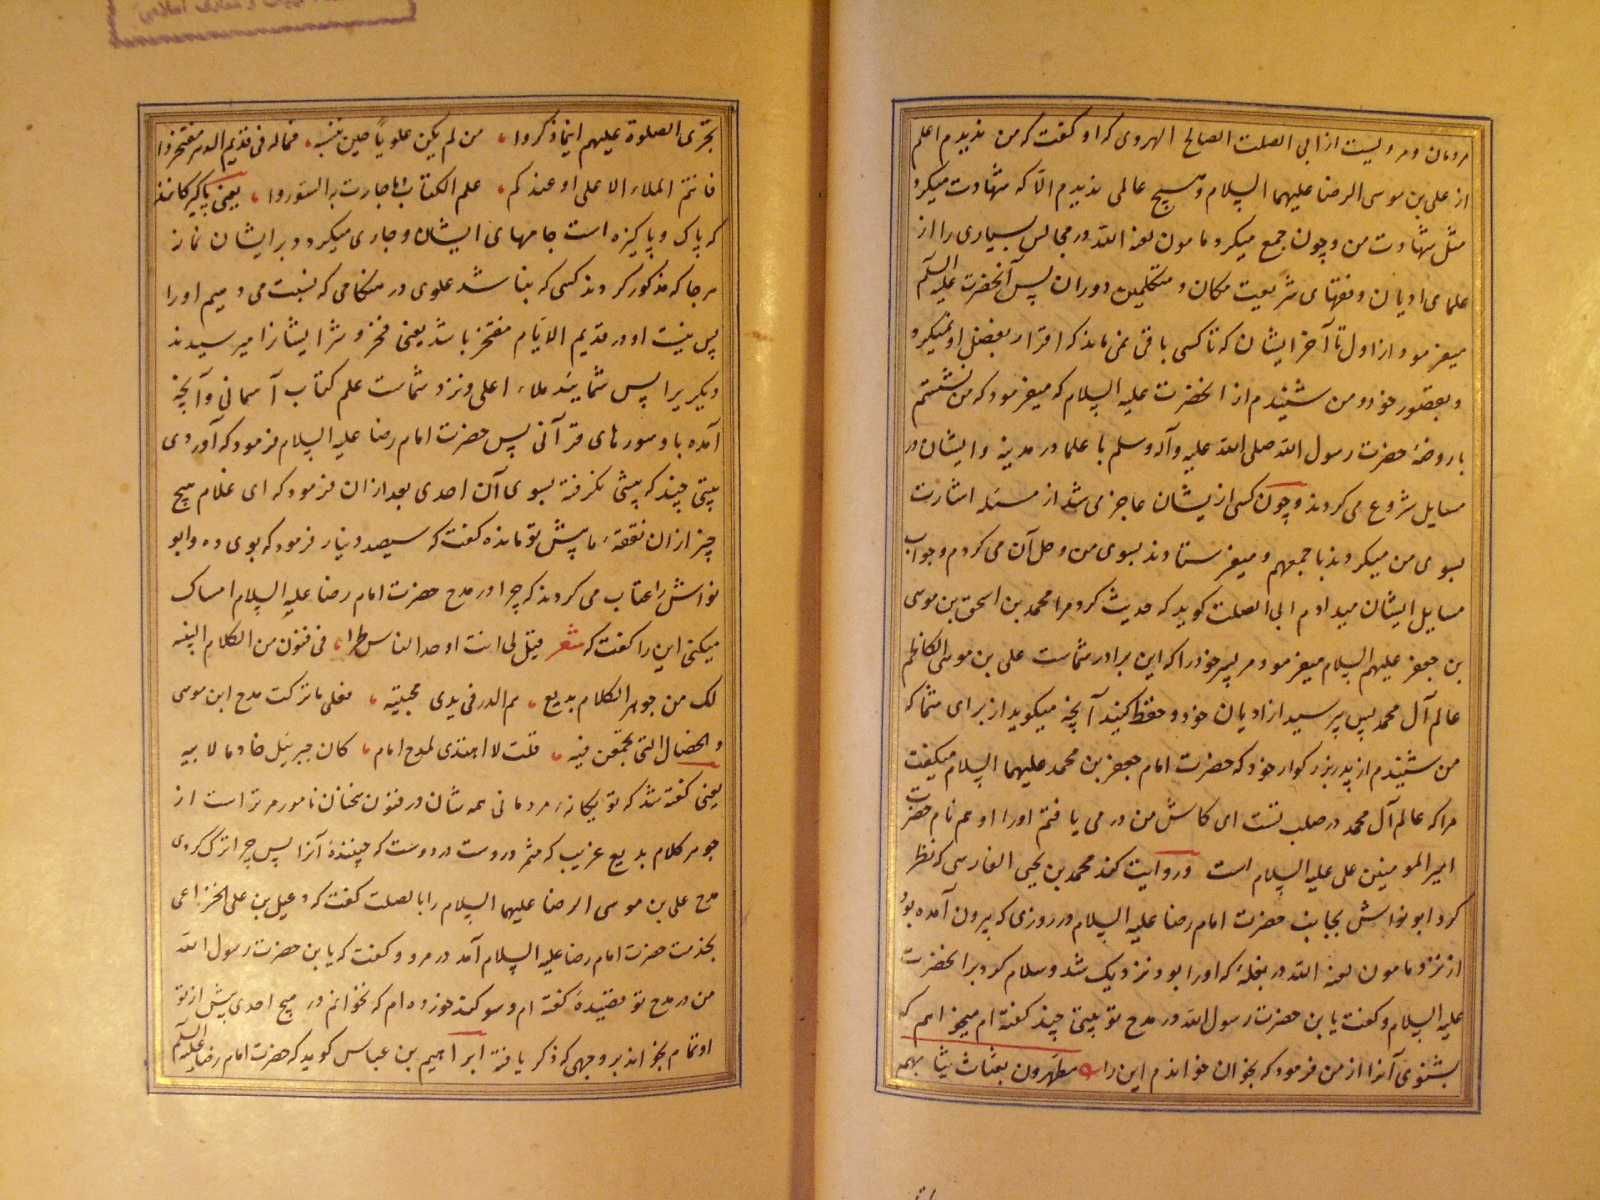 مردمان و مرویست از ابی الصلت الصالح الهروی که او گفت که من ندیدم اعلم
از علی بن موسی الرضا علیهما السلام و هیچ عالمی ندیدم الا که شهادت میکرد
مثل شهادت من و چون جمع میکرد مامون لعنه الله در مجالس بسیاری را از
علمای ادیان و فقهای شریعت مکان و متکلمین دوران پس آنحضرت علیه السلم
میفرمود از اول تا آخر ایشان که تا کسی باقی نمی ماند که اقرار بفضل او نمیکرد
و بقصور خود و من شنیدم از آنحضرت علیه السلام که میفرمود که من نشستم
با روضهٔ حضرت رسول الله صلی الله علیه و آله و سلم با علما در مدینه و ایشان در
مسایل شروع می کردند و چون کسی از یشان عاجز می شد از مسئله اشارت
بسوی من میکردند باجمعهم و میفرستادند بسوی من و حل آن می کردم و جواب
مسایل ایشان میدادم ابی الصلت گوید که حدیث کرد مرا محمد بن اسحق بن موسی
بن جعفر علیهم السلام میفرمود مر پسر خود را که این برادر شماست علی بن موسی الکاظم
عالم آل محمد پس پرسید از ادیان خود و حفظ کنید آنچه میگوید از برای شما که
من شنیدم از پدر بزرکوار خود که حضرت امام جعفر بن محمد علیهما السلام میگفت
مرا که عالم آل محمد در صلب تست ای کاش من در می یافتم او را او هم نام حضرت
امیر المومنین علی علیه السلام است و روایت کند محمد بن یحیی الفارسی که نظر
کرد ابو نواش بجانب حضرت امام رضا علیه السلام در روزی که بیرون آمده بود
از نزد مامون لعنه الله در بغلهٔ که او را بود نزدیک شد و سلام کرد بر آنحضرت
علیه السلام و گفت یا بن حضرت رسول الله در مدح تو بیتی چند گفته ام میخواهم که
بشنوی آنرا از من فرمود که بخوان خواندم این را مطهرون نقیات ثیابهم
تجری الصلوة علیهم اینما ذکروا من لم یکن علویاً حین تنسبه فماله فی قدیم الدهر مفتخروا
فانتم الملاء الاعلی او عندکم علم الکتاب و ما جاءت به السوروا یعنی پاکیزکانند
که پاک و پاکیزه است جامهای ایشان و جاری میگردد بر ایشان نماز
هر جا که مذکور کردند کسی که نباشد علوی در هنکامی که نسبت می دهیم او را
پس نیست او در قدیم الایام مفتخر باشد یعنی فخر و شر ایشانرا میرسید نه
دیگریرا پس شمایید ملاء اعلی و نزد شماست علم کتاب آسمانی و آنچه
آمده باو سورهای قرآنی پس حضرت امام رضا علیه السلام فرمود که آوردی
بیتی چند که پیشی نگرفته بسوی آن احدی بعد ازان فرمود که ای غلام هیچ
چیز ازان نفقهٔ ما پیش تو مانده گفت که سیصد دینار فرمود که بوی ده و ابو
نواش را عتاب می کردند که چرا در مدح حضرت امام رضا علیه السلام امساک
میکنی این را گفت که شعر قیل لی انت اوحد الناس طرا فی فنون من الکلام النبیه
لک من جوهر الکلام بدیع ثمر الدر فی یدی مجتبیه فعلی ما ترکت مدح ابن موسی
و الخصال التی تجمعن فیه قلت لا اهتدی لمدح امام کان جبرئیل خادما لابیه
یعنی گفته شد که تو یکانهٔ مردمانی همه شان در فنون سخنان نامور مر تراست از
جوهر کلام بدیع غریب که مثمر دروست در دوست که چینندهٔ آنرا پس چرا ترک کردی
مدح علی بن موسی الرضا علیهما السلام را با صلت گفت که دعبل بن علی الخزاعی
بخدمت حضرت امام رضا علیه السلام آمد در مرو و گفت که یا بن حضرت رسول الله
من در مدح تو قصیدهٔ گفته ام و سوگند خورده ام که نخوانم در هیچ احدی پیش از تو
او تمام بخواند بر وجهی که ذکر یافته ابراهیم بن عباس گوید که حضرت امام رضا علیه السلم